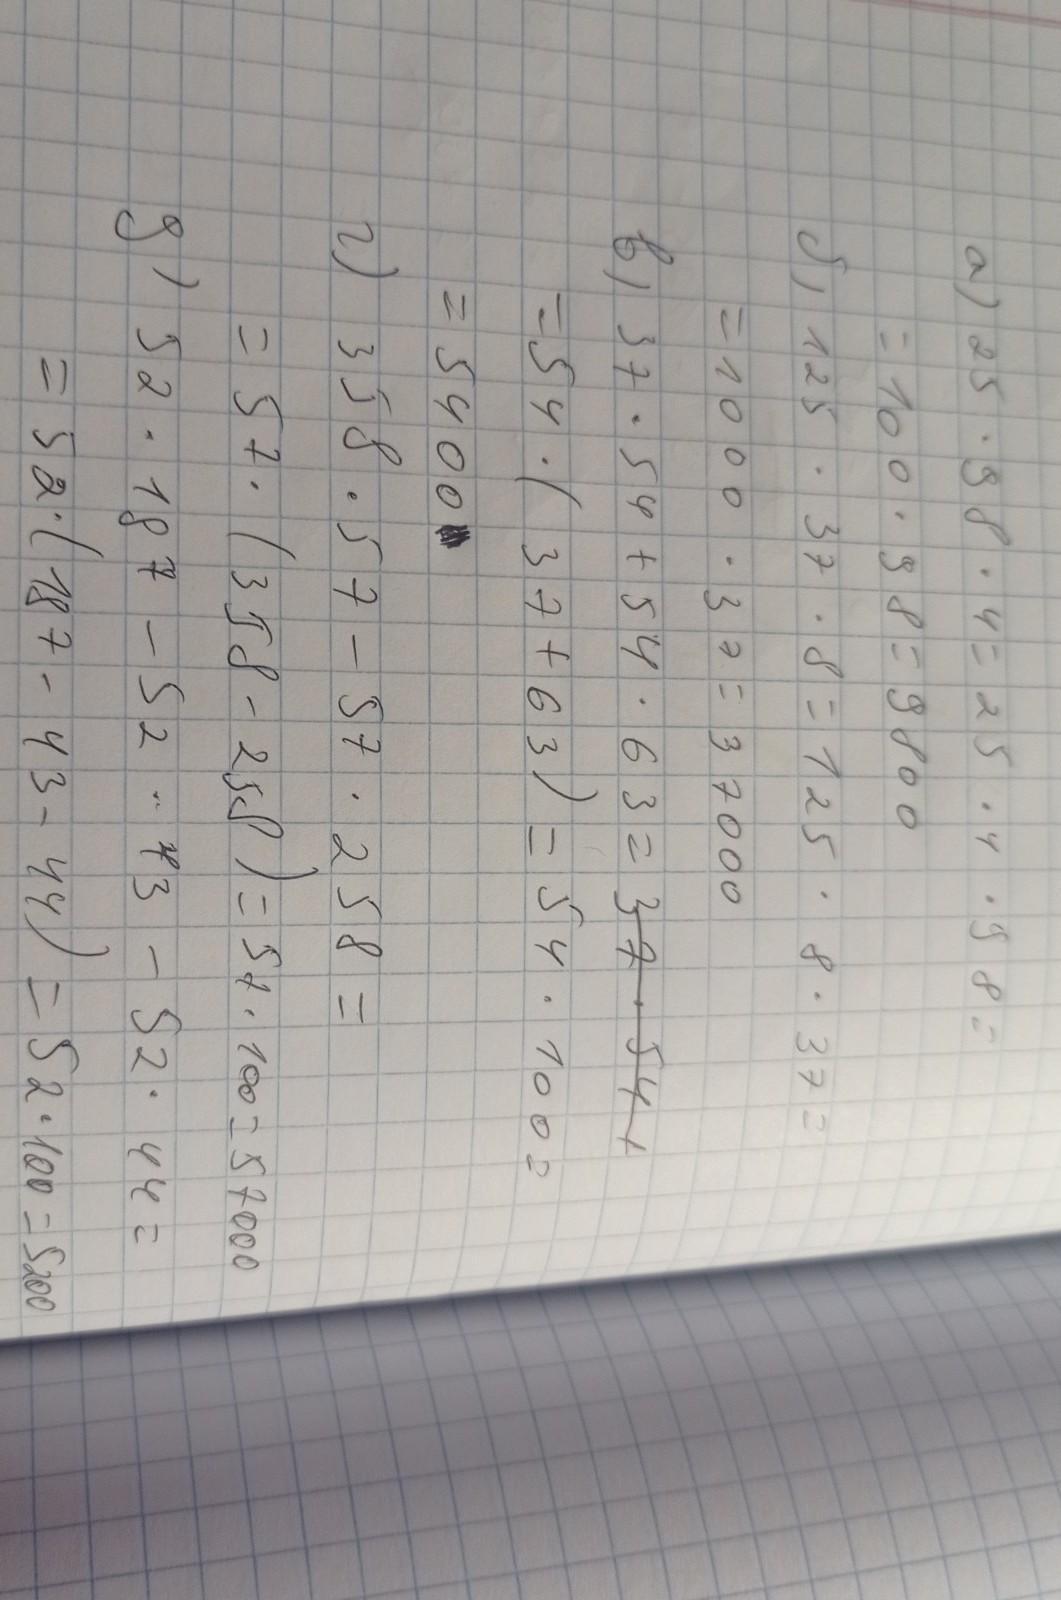 а) 25 · 98 · 4 = 25 · 4 · 98 =
= 100 · 98 = 9800
б) 125 · 37 · 8 = 125 · 8 · 37 =
= 1000 · 37 = 37000
в) 37 · 54 + 54 · 63 = 37 · 54 +
= 54 · (37 + 63) = 54 · 100 =
= 5400
г) 358 · 57 - 57 · 258 =
= 57 · (358 - 258) = 57 · 100 = 57000
д) 52 · 187 - 52 · 43 - 52 · 44 =
= 52 · (187 - 43 - 44) = 52 · 100 = 5200